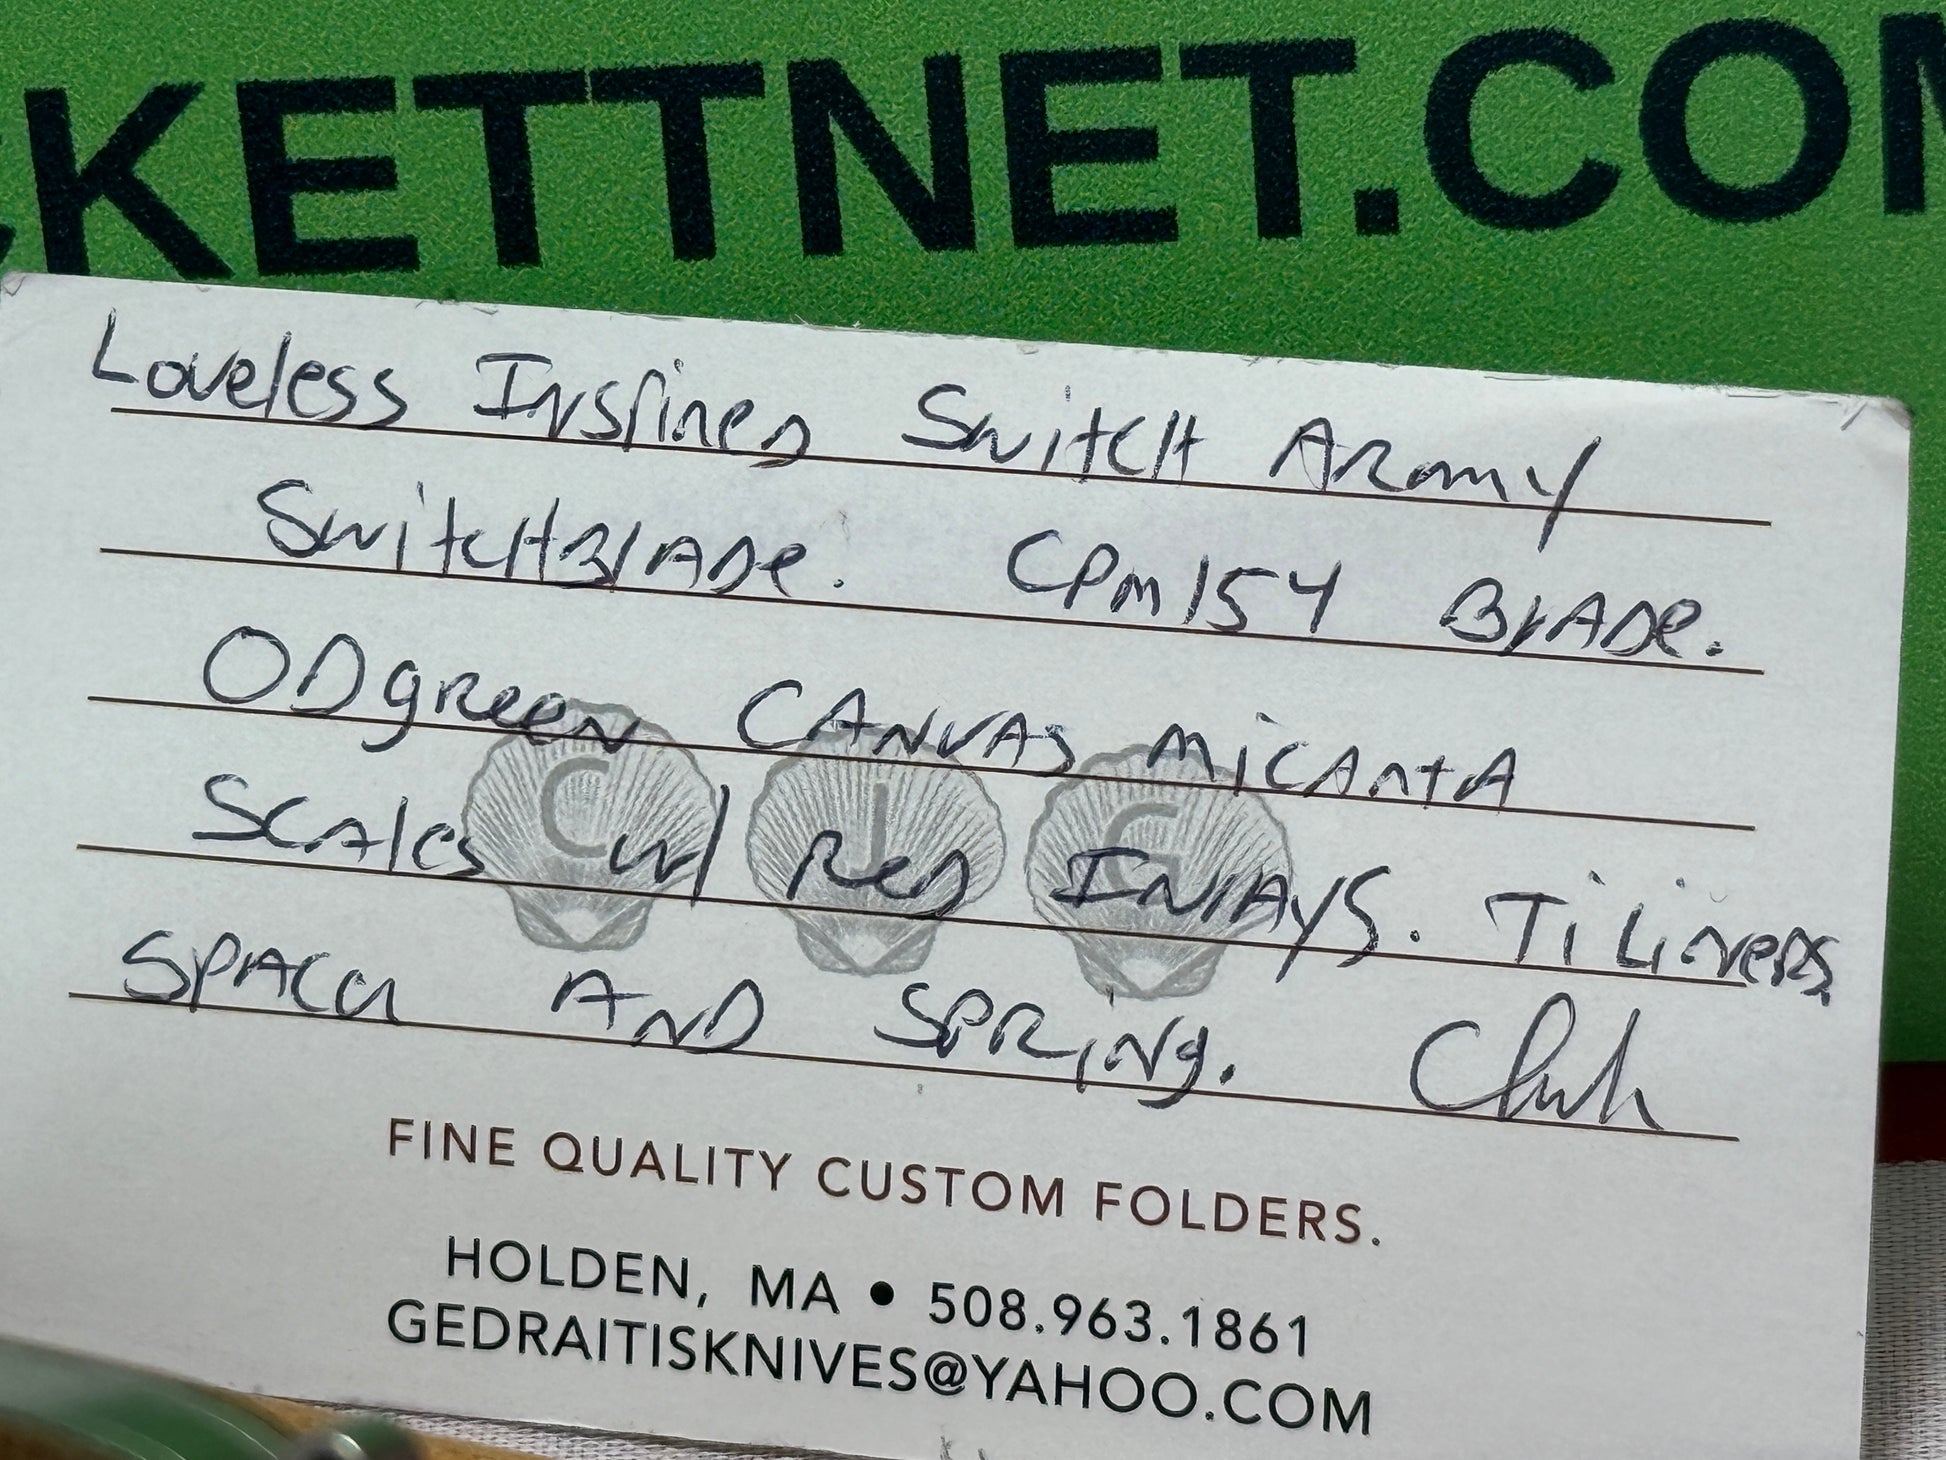 CKETTNET.COM
Loveless Inspired Switch Army
SwitchBlade. CPM154 Blade.
OD green CANVAS MiCARtA
Scales w/ Red InlAyS. Ti Liners,
SPACer AND SPRiNg. Chuck
C J G
FINE QUALITY CUSTOM FOLDERS.
HOLDEN, MA • 508.963.1861
GEDRAITISKNIVES@YAHOO.COM